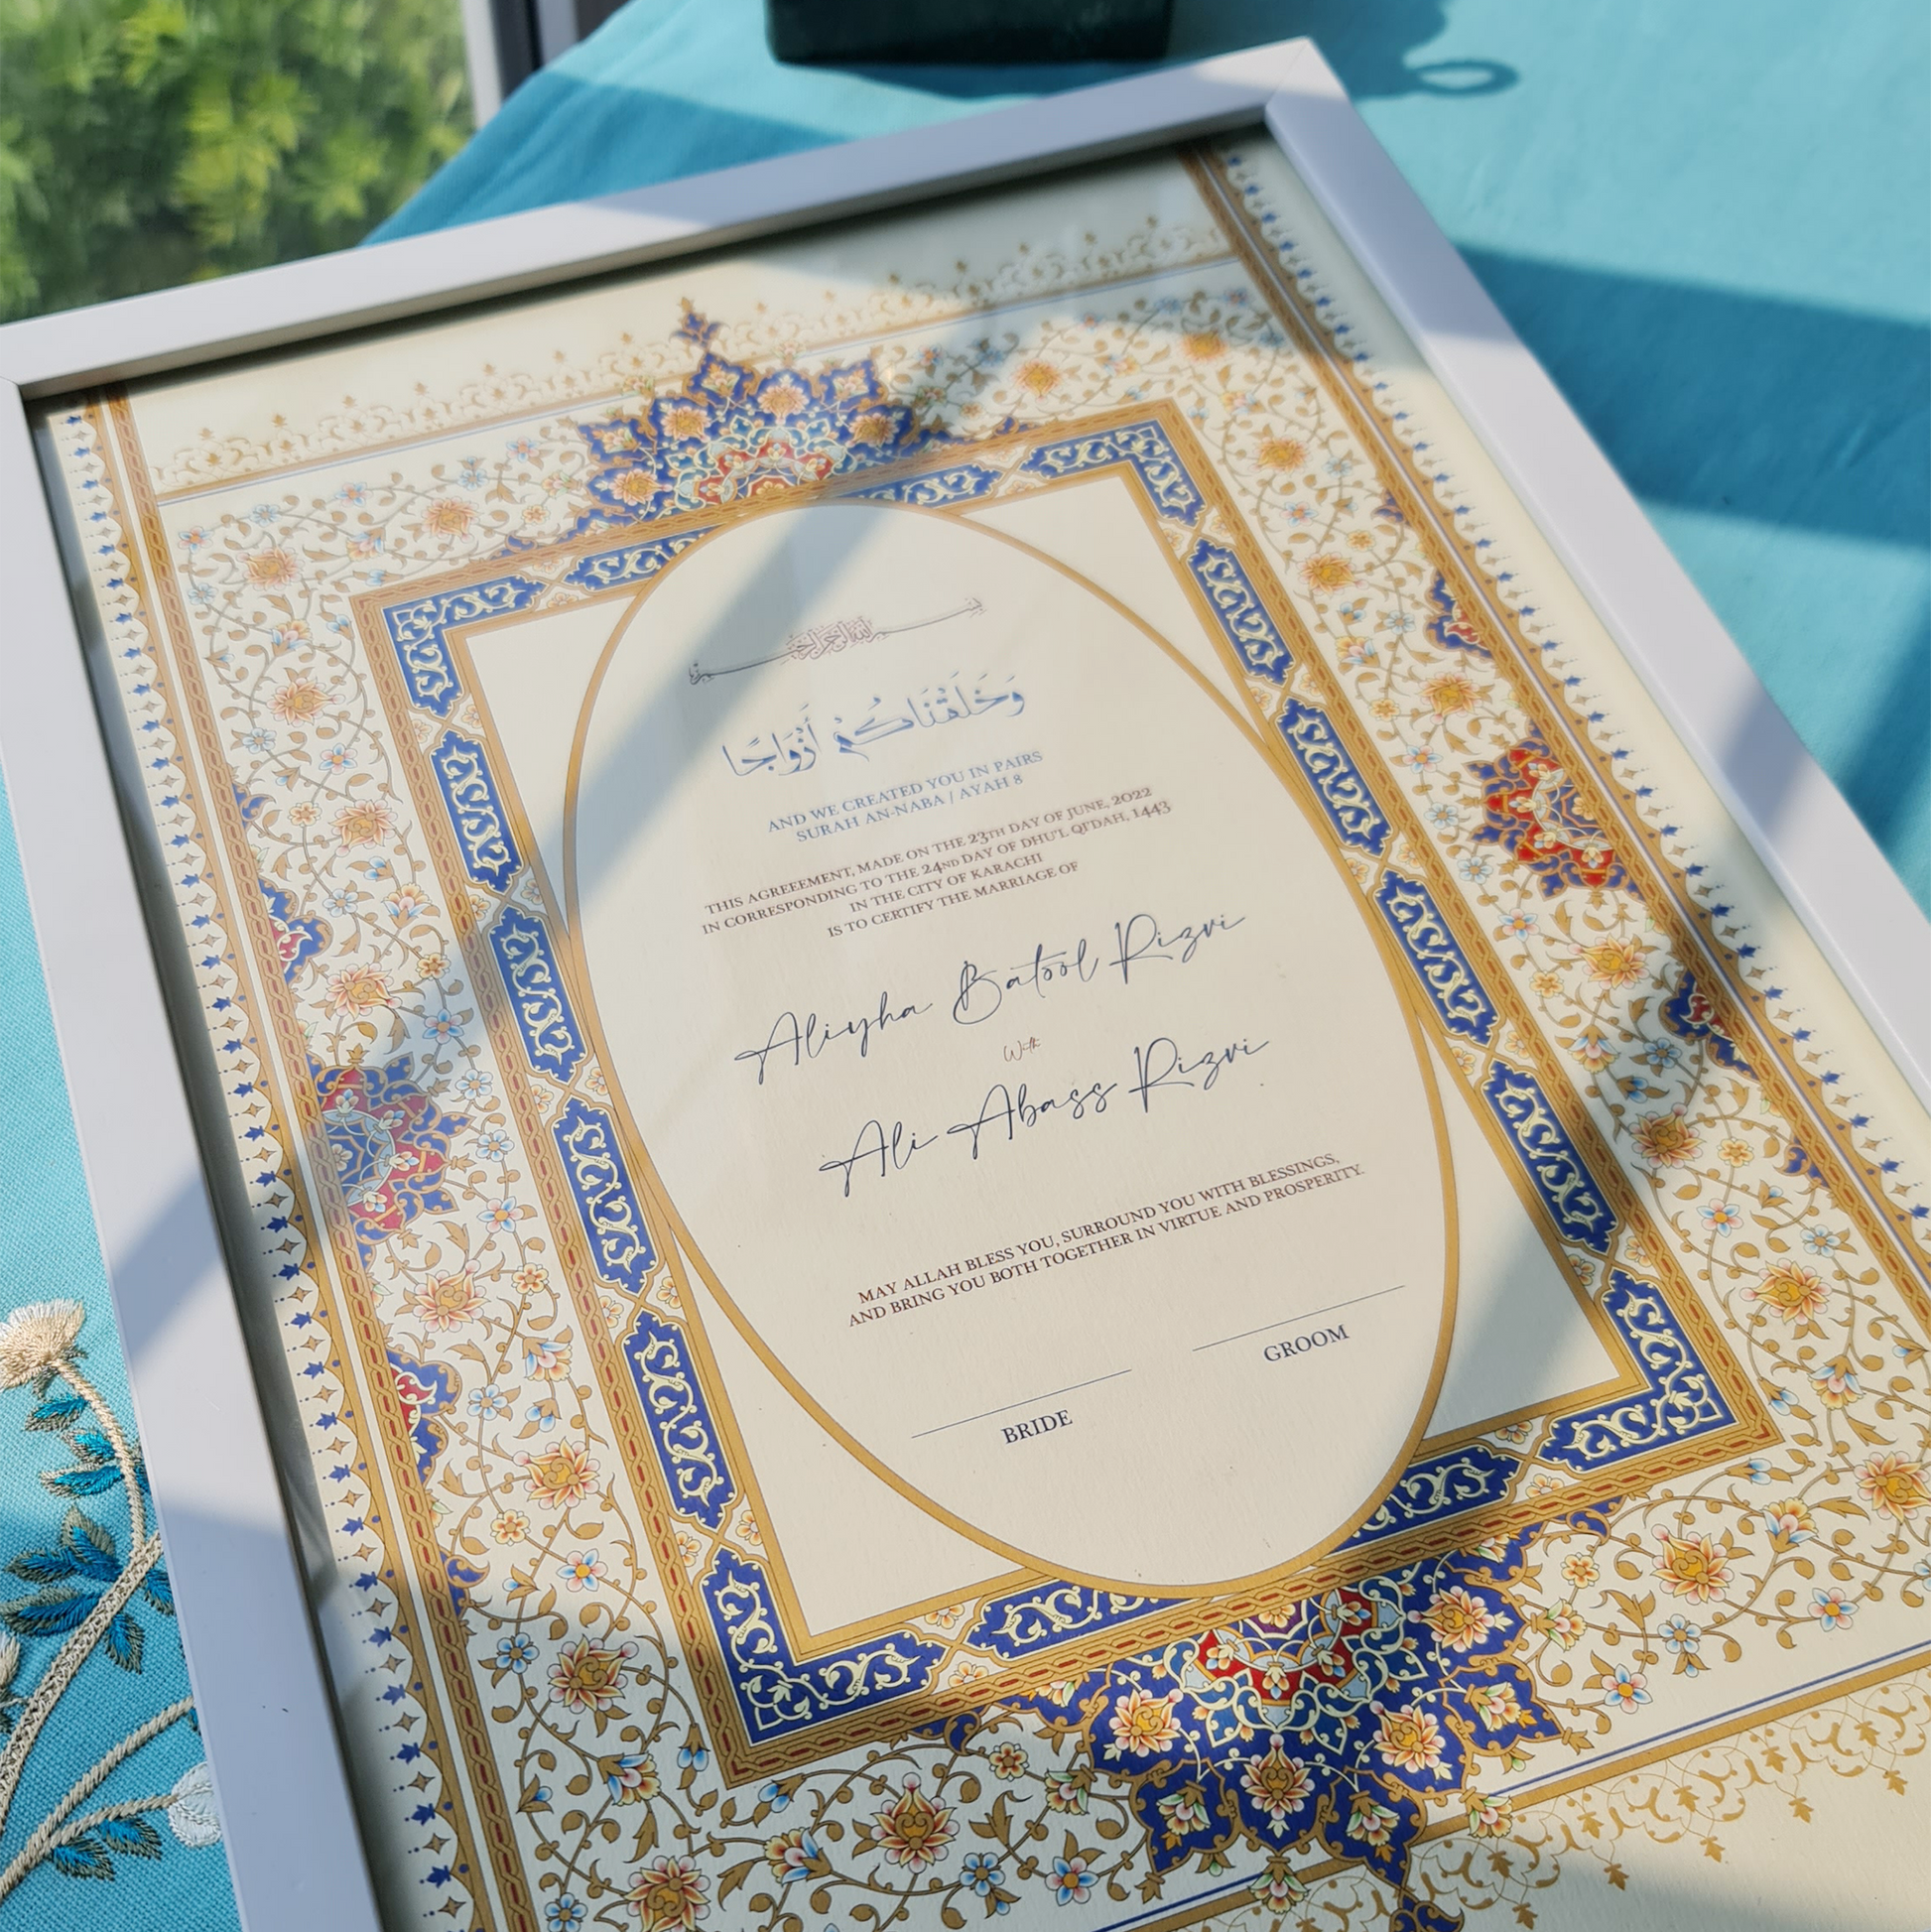 بسم الله الرحمن الرحيم
وَخَلَقْنَاكُمْ أَزْوَاجًا
AND WE CREATED YOU IN PAIRS
SURAH AN-NABA / AYAH 8
THIS AGREEEMENT, MADE ON THE 23TH DAY OF JUNE, 2022
IN CORRESPONDING TO THE 24ND DAY OF DHU'L QI'DAH, 1443
IN THE CITY OF KARACHI
IS TO CERTIFY THE MARRIAGE OF
Aliyha Batool Rizvi
With
Ali Abass Rizvi
MAY ALLAH BLESS YOU, SURROUND YOU WITH BLESSINGS,
AND BRING YOU BOTH TOGETHER IN VIRTUE AND PROSPERITY.
BRIDE
GROOM